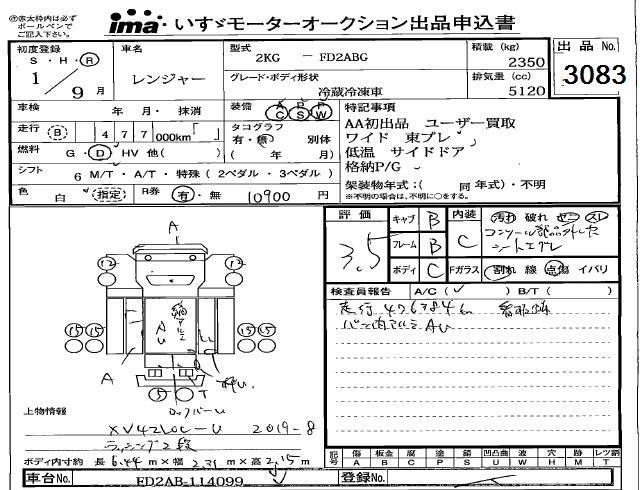 ㊟赤太枠内は必ず
ボールペンで
ご記入下さい。
ima いすゞモーターオークション出品申込書
初度登録
S・H・R
1/9月
車名
レンジャー
型式
2KG － FD2ABG
グレード・ボディ形状
冷蔵冷凍車
積載 (kg)
2350
排気量 (cc)
5120
出品 No.
3083
車検 年 月・ 抹消
装備 A P P
C S W
走行 B 477 000km「 」
タコグラフ
有・無 別体
( 年 月)
燃料 G・D・HV 他( )
シフト 6 M/T・A/T・特殊(2ペダル・3ペダル)
色 白 指定 R券 有・無 10900 円
特記事項
AA初出品 ユーザー買取
ワイド 東プレ
低温 サイドドア
格納P/G
架装物年式:( 同 年式)・不明
※不明の場合は、不明に○をする。
評価
3.5
キャブ B
フレーム B
ボディ C
内装 C
汚れ 破れ コゲ スレ
コンソール部品外レ欠
シートエグレ
Fガラス 割れ 線 点傷 イバリ
検査員報告 A/C( ✓ ) B/T( )
走行 476384km
バン内アルミ AU
A
12
12
15 15
15 15
AU
A
5
T
ロックバーU
上物情報
XV42LOC-U 2019-8
ラッシング2段
ボディ内寸約 長 6.44 m×幅 2.31 m×高 2.15 m
記号 傷 板金 腐 塗 錆 凹凸曲 波 穴 跡 レンズ類
A B C P S U W H M T
車台No. FD2AB-114099
登録No.